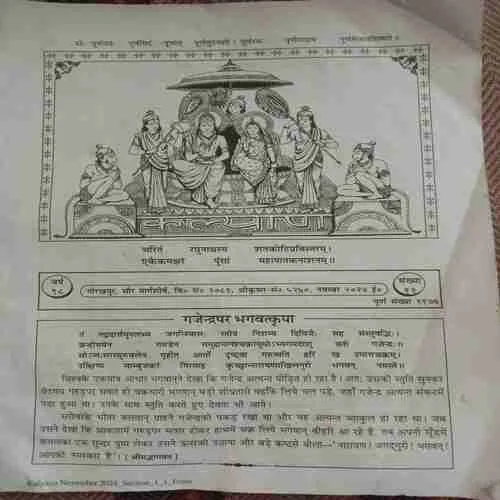 ॐ पूर्णमदः पूर्णमिदं पूर्णात् पूर्णमुदच्यते। पूर्णस्य पूर्णमादाय पूर्णमेवावशिष्यते॥
कल्याण
चरितं रघुनाथस्य शतकोटिप्रविस्तरम्।
एकैकमक्षरं पुंसां महापातकनाशनम्॥
वर्ष
९८
गोरखपुर, सौर मार्गशीर्ष, वि० सं० २०८१, श्रीकृष्ण-सं० ५२५०, नवम्बर २०२४ ई०
संख्या
११
पूर्ण संख्या ११७७
गजेन्द्रपर भगवत्कृपा
तं जगन्निवासः स्तोत्रं निशम्य दिविजैः सह संस्तुवद्भिः।
छन्दोमयेन गरुडेन यतो गजेन्द्रः॥
गृहीत आर्तो दृष्ट्वा गरुत्मति हरिं ख उपात्तचक्रम्।
उत्क्षिप्य साम्बुजकरं गिरमाह भगवन् नमस्ते॥
विश्वके एकमात्र आधार भगवान्ने देखा कि गजेन्द्र अत्यन्त पीड़ित हो रहा है। अतः उसकी स्तुति सुनकर
वेदमय गरुड़पर सवार हो चक्रधारी भगवान् बड़ी शीघ्रतासे वहाँके लिये चल पड़े, जहाँ गजेन्द्र अत्यन्त संकटमें
पड़ा हुआ था। उनके साथ स्तुति करते हुए देवता भी आये।
सरोवरके भीतर बलवान् ग्राहने गजेन्द्रको पकड़ रखा था और वह अत्यन्त व्याकुल हो रहा था। जब
उसने देखा कि आकाशमें गरुड़पर सवार होकर हाथमें चक्र लिये भगवान् श्रीहरि आ रहे हैं, तब अपनी सूँड़में
कमलका एक सुन्दर पुष्प लेकर उसने ऊपरको उठाया और बड़े कष्टसे बोला—'नारायण! जगद्गुरो! भगवन्!
आपको नमस्कार है'। (श्रीमद्भागवत)
Kalyan November 2024_Section_1_1_Front